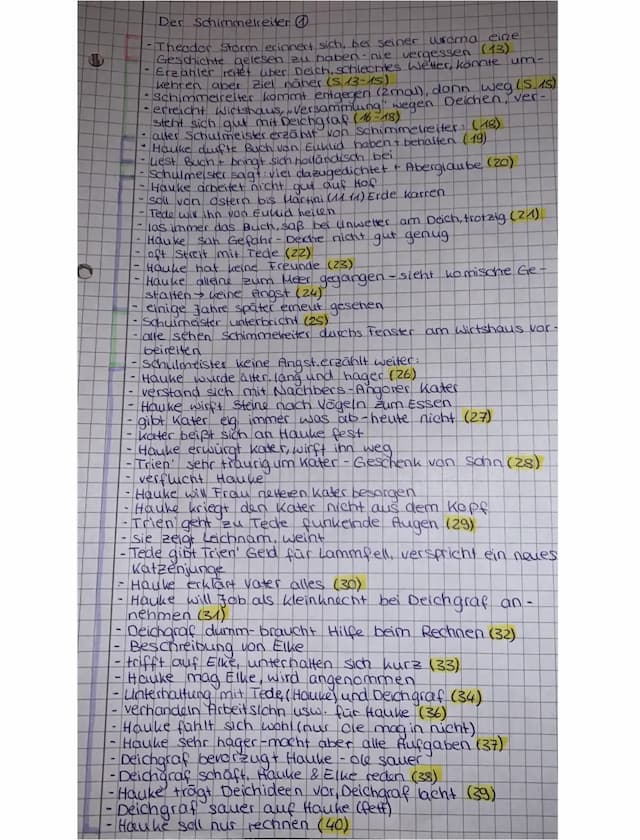 Der Schimmelreiter ①
- Theodor Storm erinnert sich, bei seiner uroma eine
Geschichte gelesen zu haben-nie vergessen (13)
- Erzähler reitet über Deich, schlechtes Wetter, könnte um-
kehren aber Ziel näher (S.13-15)
- Schimmelreiter kommt entgegen (2mal), dann weg (S.15)
- erreicht Wirtshaus, „Versammlung" wegen Deichen, ver-
steht sich gut mit Deichgraf (16-18)
- alter Schulmeister erzählt von Schimmelreiter: (18)
- Hauke durfte Buch von Euklid haben + behalten (19)
- liest Buch + bringt sich holländisch bei
- Schulmeister sagt: viel dazugedichtet + Aberglaube (20)
- Hauke arbeitet nicht gut auf Hof
- soll von Ostern bis Martini (11.11) Erde karren
- Tede will ihn von Euklid heilen
- las immer das Buch, saß bei Unwetter am Deich, trotzig (21)
- Hauke sah Gefahr - Deiche nicht gut genug
- oft Streit mit Tede (22)
- Hauke hat keine Freunde (23)
- Hauke alleine zum Meer gegangen - sieht komische Ge-
stalten → keine Angst (24)
- einige Jahre später erneut gesehen
- Schulmeister unterbricht (25)
- alle sehen Schimmelreiter durchs Fenster am Wirtshaus vor-
beireiten
- Schulmeister keine Angst, erzählt weiter:
- Hauke wurde älter, lang und hager (26)
- verstand sich mit Nachbers-Angorer Kater
- Hauke wirft Steine nach Vögeln zum Essen
- gibt Kater eig. immer was ab-heute nicht (27)
- Kater beißt sich an Hauke fest
- Hauke erwürgt Kater, wirft ihn weg
- Trien' sehr traurig um Kater - Geschenk von Sohn (28)
- verflucht Hauke
- Hauke will Frau netteren Kater besorgen
- Hauke kriegt den Kater nicht aus dem Kopf
- Trien' geht zu Tede funkelnde Augen (29)
- sie zeigt Leichnam, weint
- Tede gibt Trien' Geld für Lammfell, verspricht ein neues
Katzenjunge
- Hauke erklärt Vater alles (30)
- Hauke will Job als Kleinknecht bei Deichgraf an-
nehmen (31)
- Deichgraf dumm-braucht Hilfe beim Rechnen (32)
- Beschreibung von Elke
- trifft auf Elke, unterhalten sich kurz (33)
- Hauke mag Elke, wird angenommen
- Unterhaltung mit Tede, (Hauke) und Dechgraf (34)
- verhandeln Arbeitslohn usw. für Hauke (36)
- Hauke fühlt sich wohl (nur Ole mag in nicht)
- Hauke sehr hager-macht aber alle Aufgaben (37)
- Deichgraf bevorzugt Hauke - Ole sauer
- Deichgraf schäft, Hauke & Elke reden (38)
- Hauke trägt Deichideen vor, Deichgraf lacht (39)
- Deichgraf sauer auf Hauke (fett)
- Hauke soll nur rechnen (40)